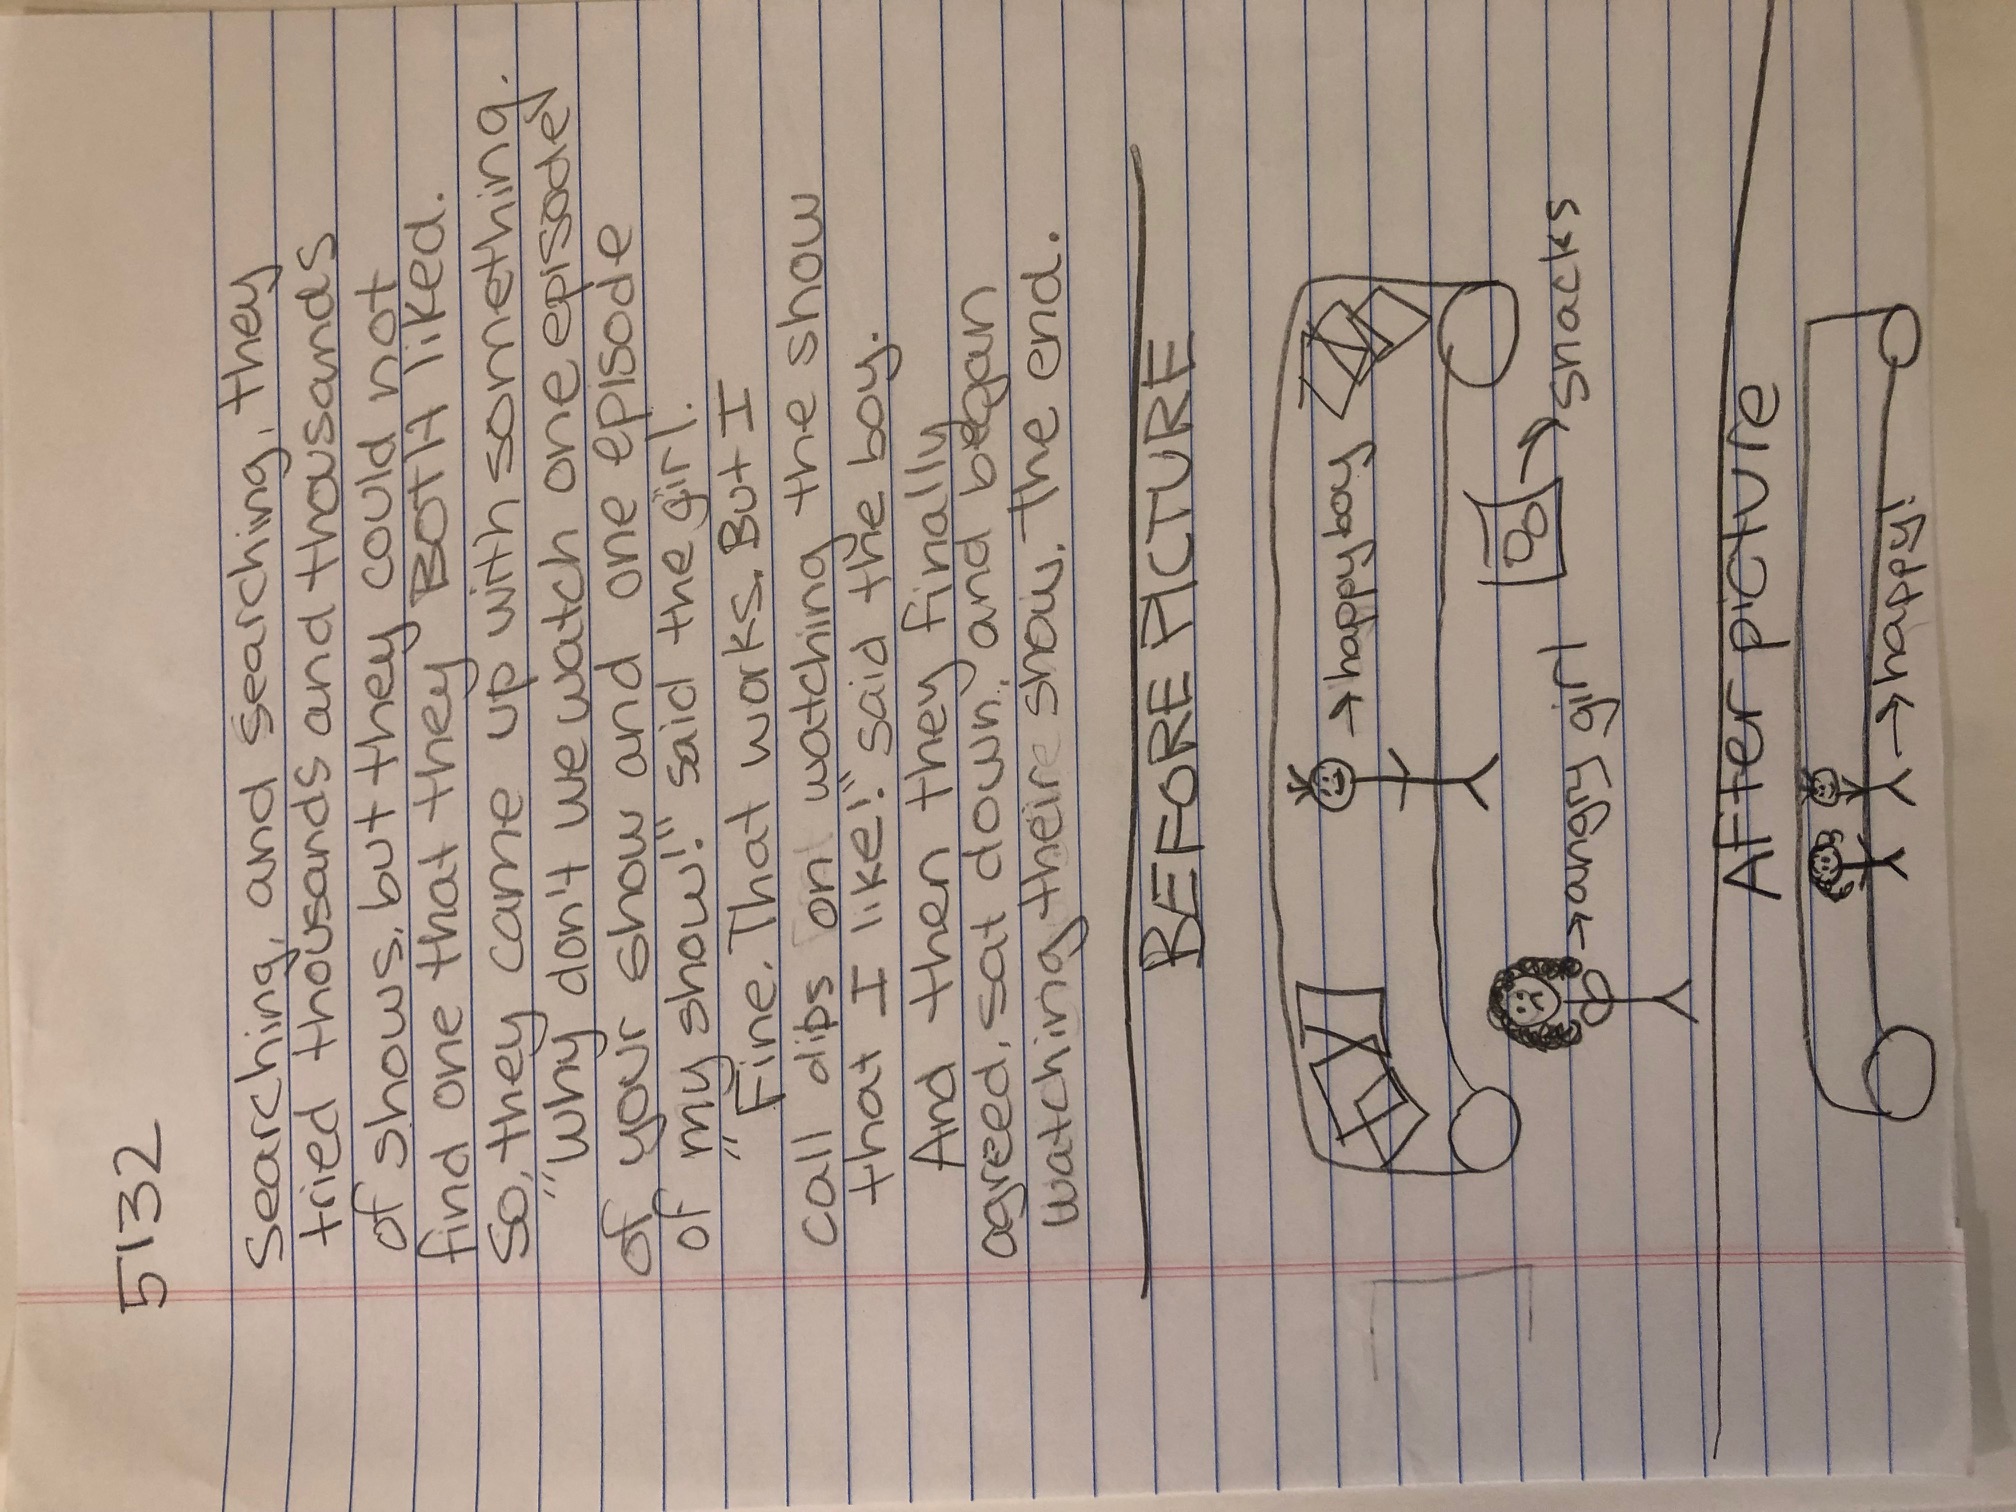 5132
searching, and searching, they
tried thousands and thousands
of shows, but they could not
find one that they BOTH liked.
So, they came up with something.
"Why don't we watch one episode
of your show and one episode
of my show!" said the girl.
"Fine. That works. But I
call dibs on watching the show
that I like!" said the boy.
And then they finally
agreed, sat down, and began
watching their show. The end.
BEFORE PICTURE
→ happy boy
→ angry girl
→ snacks
After picture
→ happy!